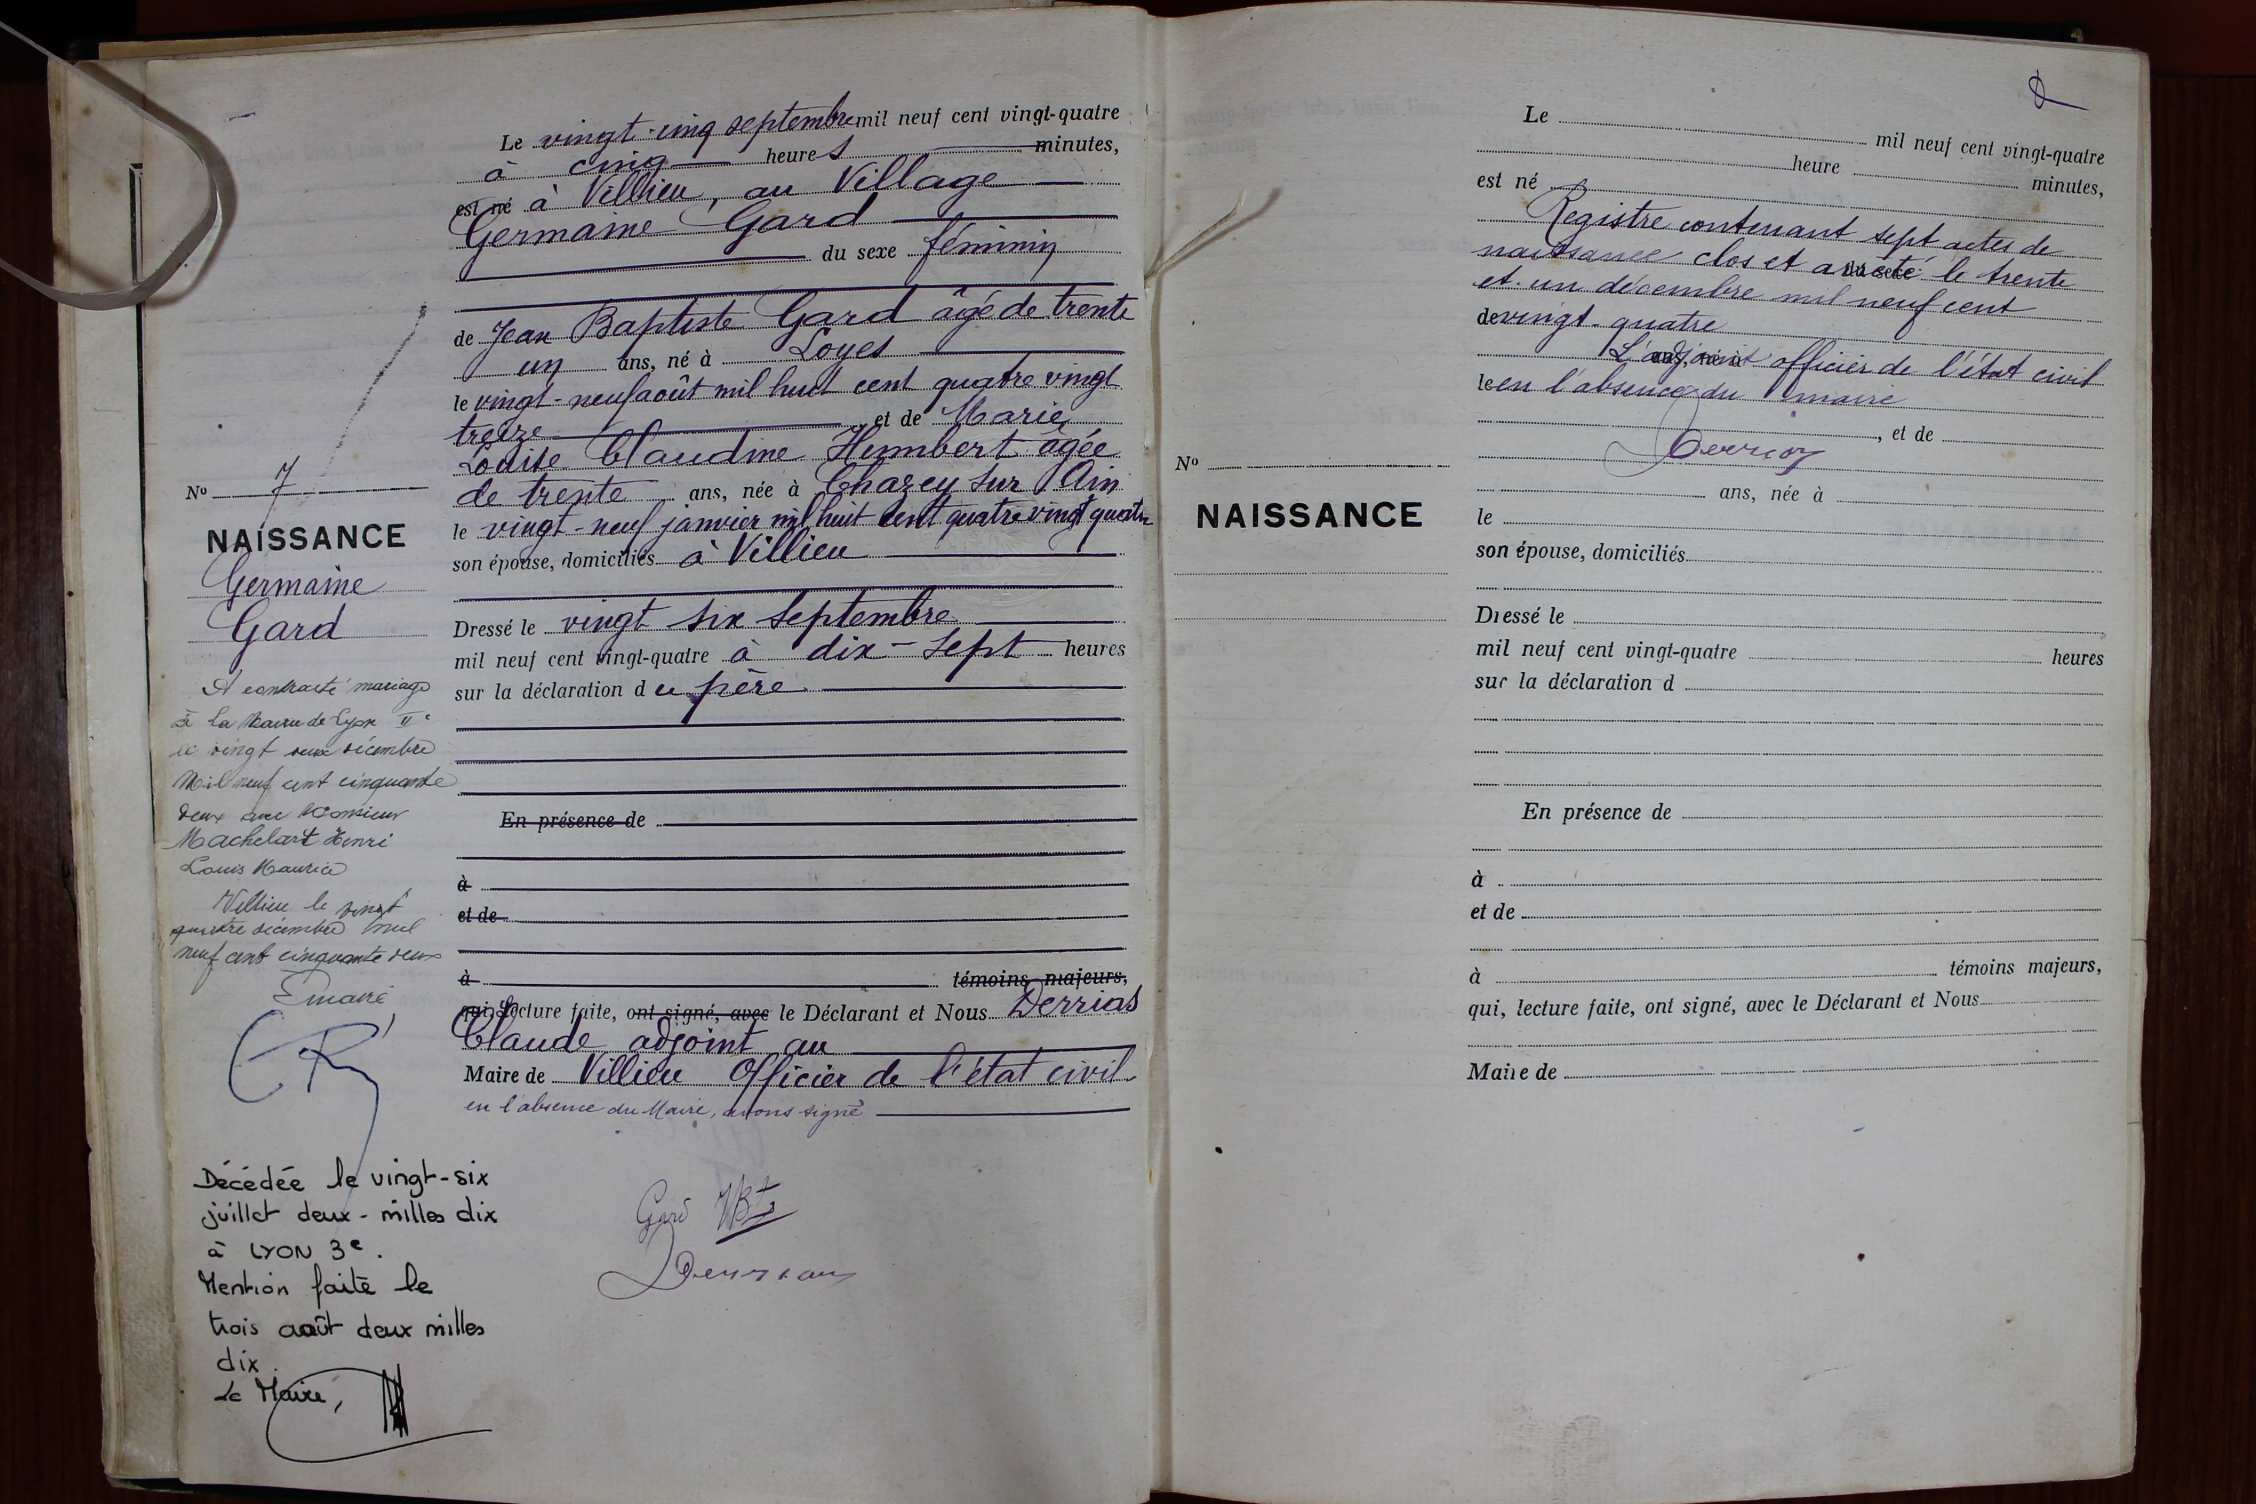 Le vingt-cinq septembre mil neuf cent vingt-quatre
à cinq heures minutes,
est né à Villieu, au Village
Germaine Gard
du sexe féminin
de Jean Baptiste Gard âgé de trente
un ans, né à Loyes
le vingt-neuf août mil huit cent quatre vingt
treize et de Marie
Louise Claudine Humbert âgée
de trente ans, née à Chazey sur Ain
le vingt-neuf janvier mil huit cent quatre vingt quatre
son épouse, domiciliés à Villieu
Dressé le vingt six septembre
mil neuf cent vingt-quatre à dix-sept heures
sur la déclaration du père
En présence de
à
et de
à témoins majeurs,
qui, Lecture faite, ont signé, avec le Déclarant et Nous Derrias
Claude adjoint au
Maire de Villieu Officier de l'état civil
en l'absence du Maire, avons signé
Gard JBte
No 7
NAISSANCE
Germaine
Gard
A contracté mariage
à la Mairie de Lyon II e
le vingt deux décembre
Mil neuf cent cinquante
deux avec Monsieur
Machelart Henri
Louis Maurice
Villieu le vingt
quatre décembre mil
neuf cent cinquante deux
Décédée le vingt-six
juillet deux-milles dix
à LYON 3e.
Mention faite le
trois août deux milles
dix.
Le Maire,
Le mil neuf cent vingt-quatre
heure minutes,
est né
Registre contenant sept actes de
naissance clos et arrêté le trente
du sexe
et un décembre mil neuf cent
de vingt-quatre
ans, né à
L'adjoint officier de l'état civil
le en l'absence du maire
, et de
ans, née à
le
son épouse, domiciliés
Dressé le
mil neuf cent vingt-quatre heures
sur la déclaration d
En présence de
à
et de
à témoins majeurs,
qui, lecture faite, ont signé, avec le Déclarant et Nous
Maire de
No
NAISSANCE